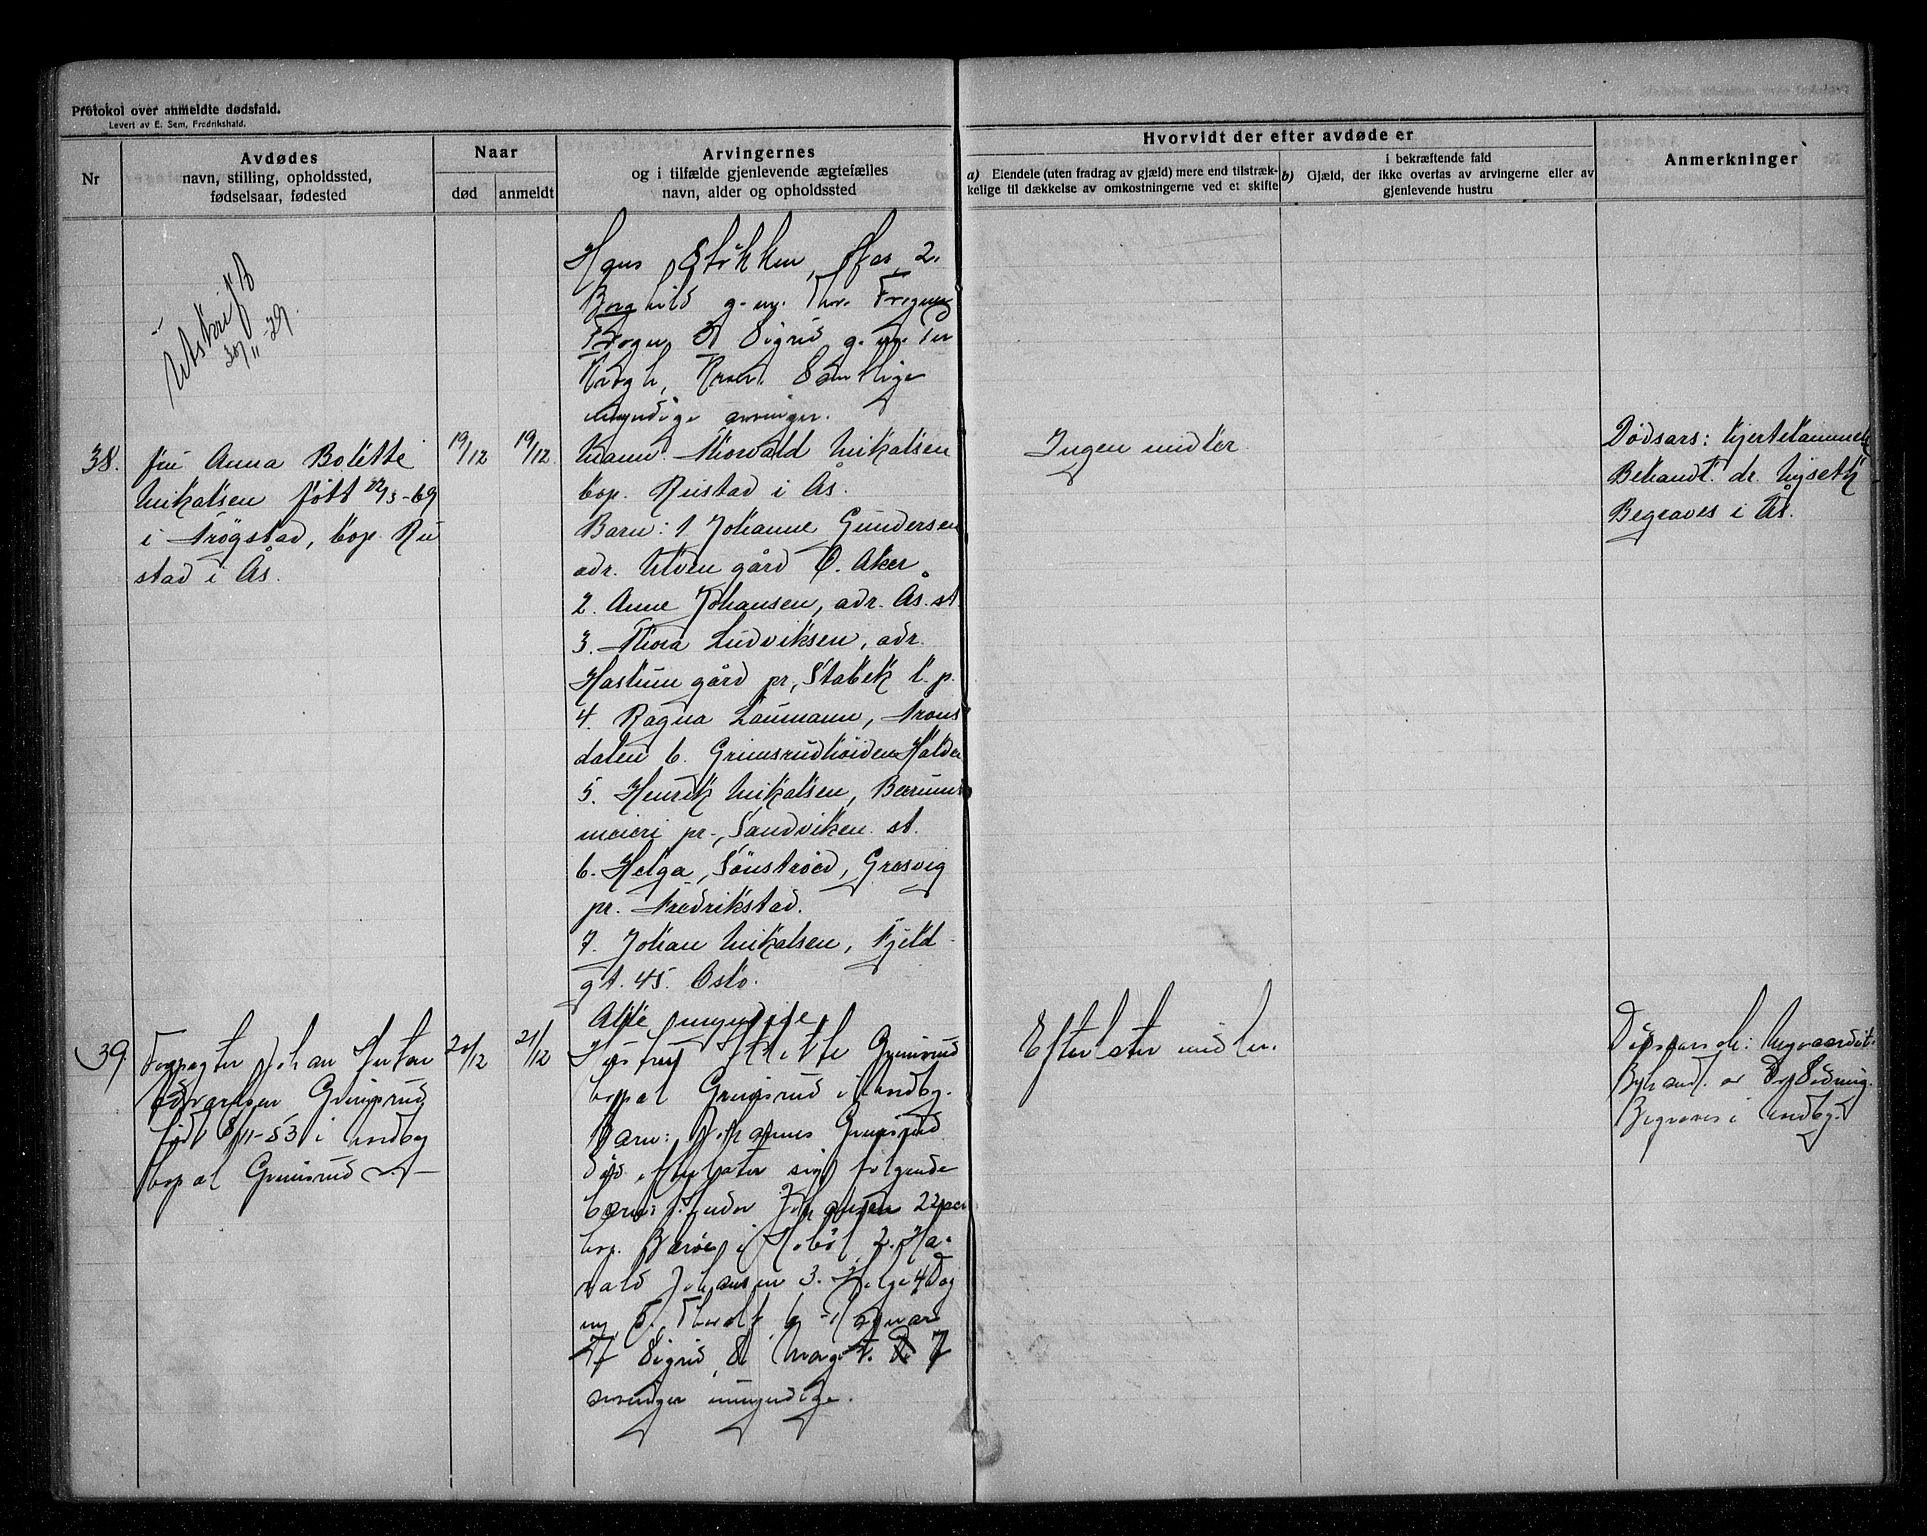 Protokol over anmeldte dødsfald.
Levert av E. Sem, Fredrikshald.
Nr
Avdødes
navn, stilling, opholdssted,
fødselsaar, fødested
Naar
død
anmeldt
Arvingernes
og i tilfælde gjenlevende ægtefælles
navn, alder og opholdssted
Hvorvidt der efter avdøde er
a) Eiendele (uten fradrag av gjæld) mere end tilstræk-
kelige til dækkelse av omkostningerne ved et skifte
i bekræftende fald
b) Gjæld, der ikke overtas av arvingerne eller av
gjenlevende hustru
Anmerkninger
Utskrift
30/11-29.
Stökken, Aas 2.
Borghild g. m.
Frogn Sigrid g. m.
Krogh, Samtlige
myndige arvinger.
38.
fru Anna Bolette
Nikalsen født 22/3-69
i Trøgstad, bop. Ru
stad i Ås.
19/12
19/12
Mann. Thorvald Nikalsen
bop. Rustad i Ås.
Barn: 1 Johanne Gundersen
adr. Ulven gård Ø. Aker
2. Anne Johansen, adr. Ås. st.
3. Thora Ludviksen, adr.
Haslum gård pr. Stabek l. p.
4. Ragna Laumann, Trons
dalen 6. Grimsrudhøiden Halden
5. Henrik Nikalsen, Bærums
meieri pr. Sandviken st.
6. Helga Sönsterød, Gresvig
pr. Fredrikstad.
7. Johan Nikalsen, Fjeld
gt. 45. Oslo.
Alle myndige.
Ingen midler
Dødsårs: hjertelammelse
Behandl. dr. Nyseth
Begraves i Ås.
39
Johan
Edvardsen Grimsrud
født 8/11-53 i
bop al Grimsrud
20/12
21/12
Grimsrud
bop al Grimsrud i
Barn: Johannes Grimsrud
død, efterlater sig følgende
barn: 1. Johansen 22 aar
bop. i Hobøl 2. Ha-
rald Johansen 3. Helge 4 Dag
ny 5. Thorolf 6 Ragnar
7 Sigrid 8 Margit. 7
arvinger umyndige.
Efterlater midler.
Dødsårsak:
Behandl. av
Begraves i